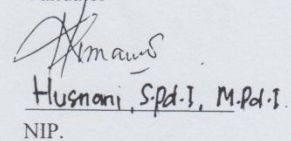 Husnani, S.Pd.I, M.Pd.I.
NIP.